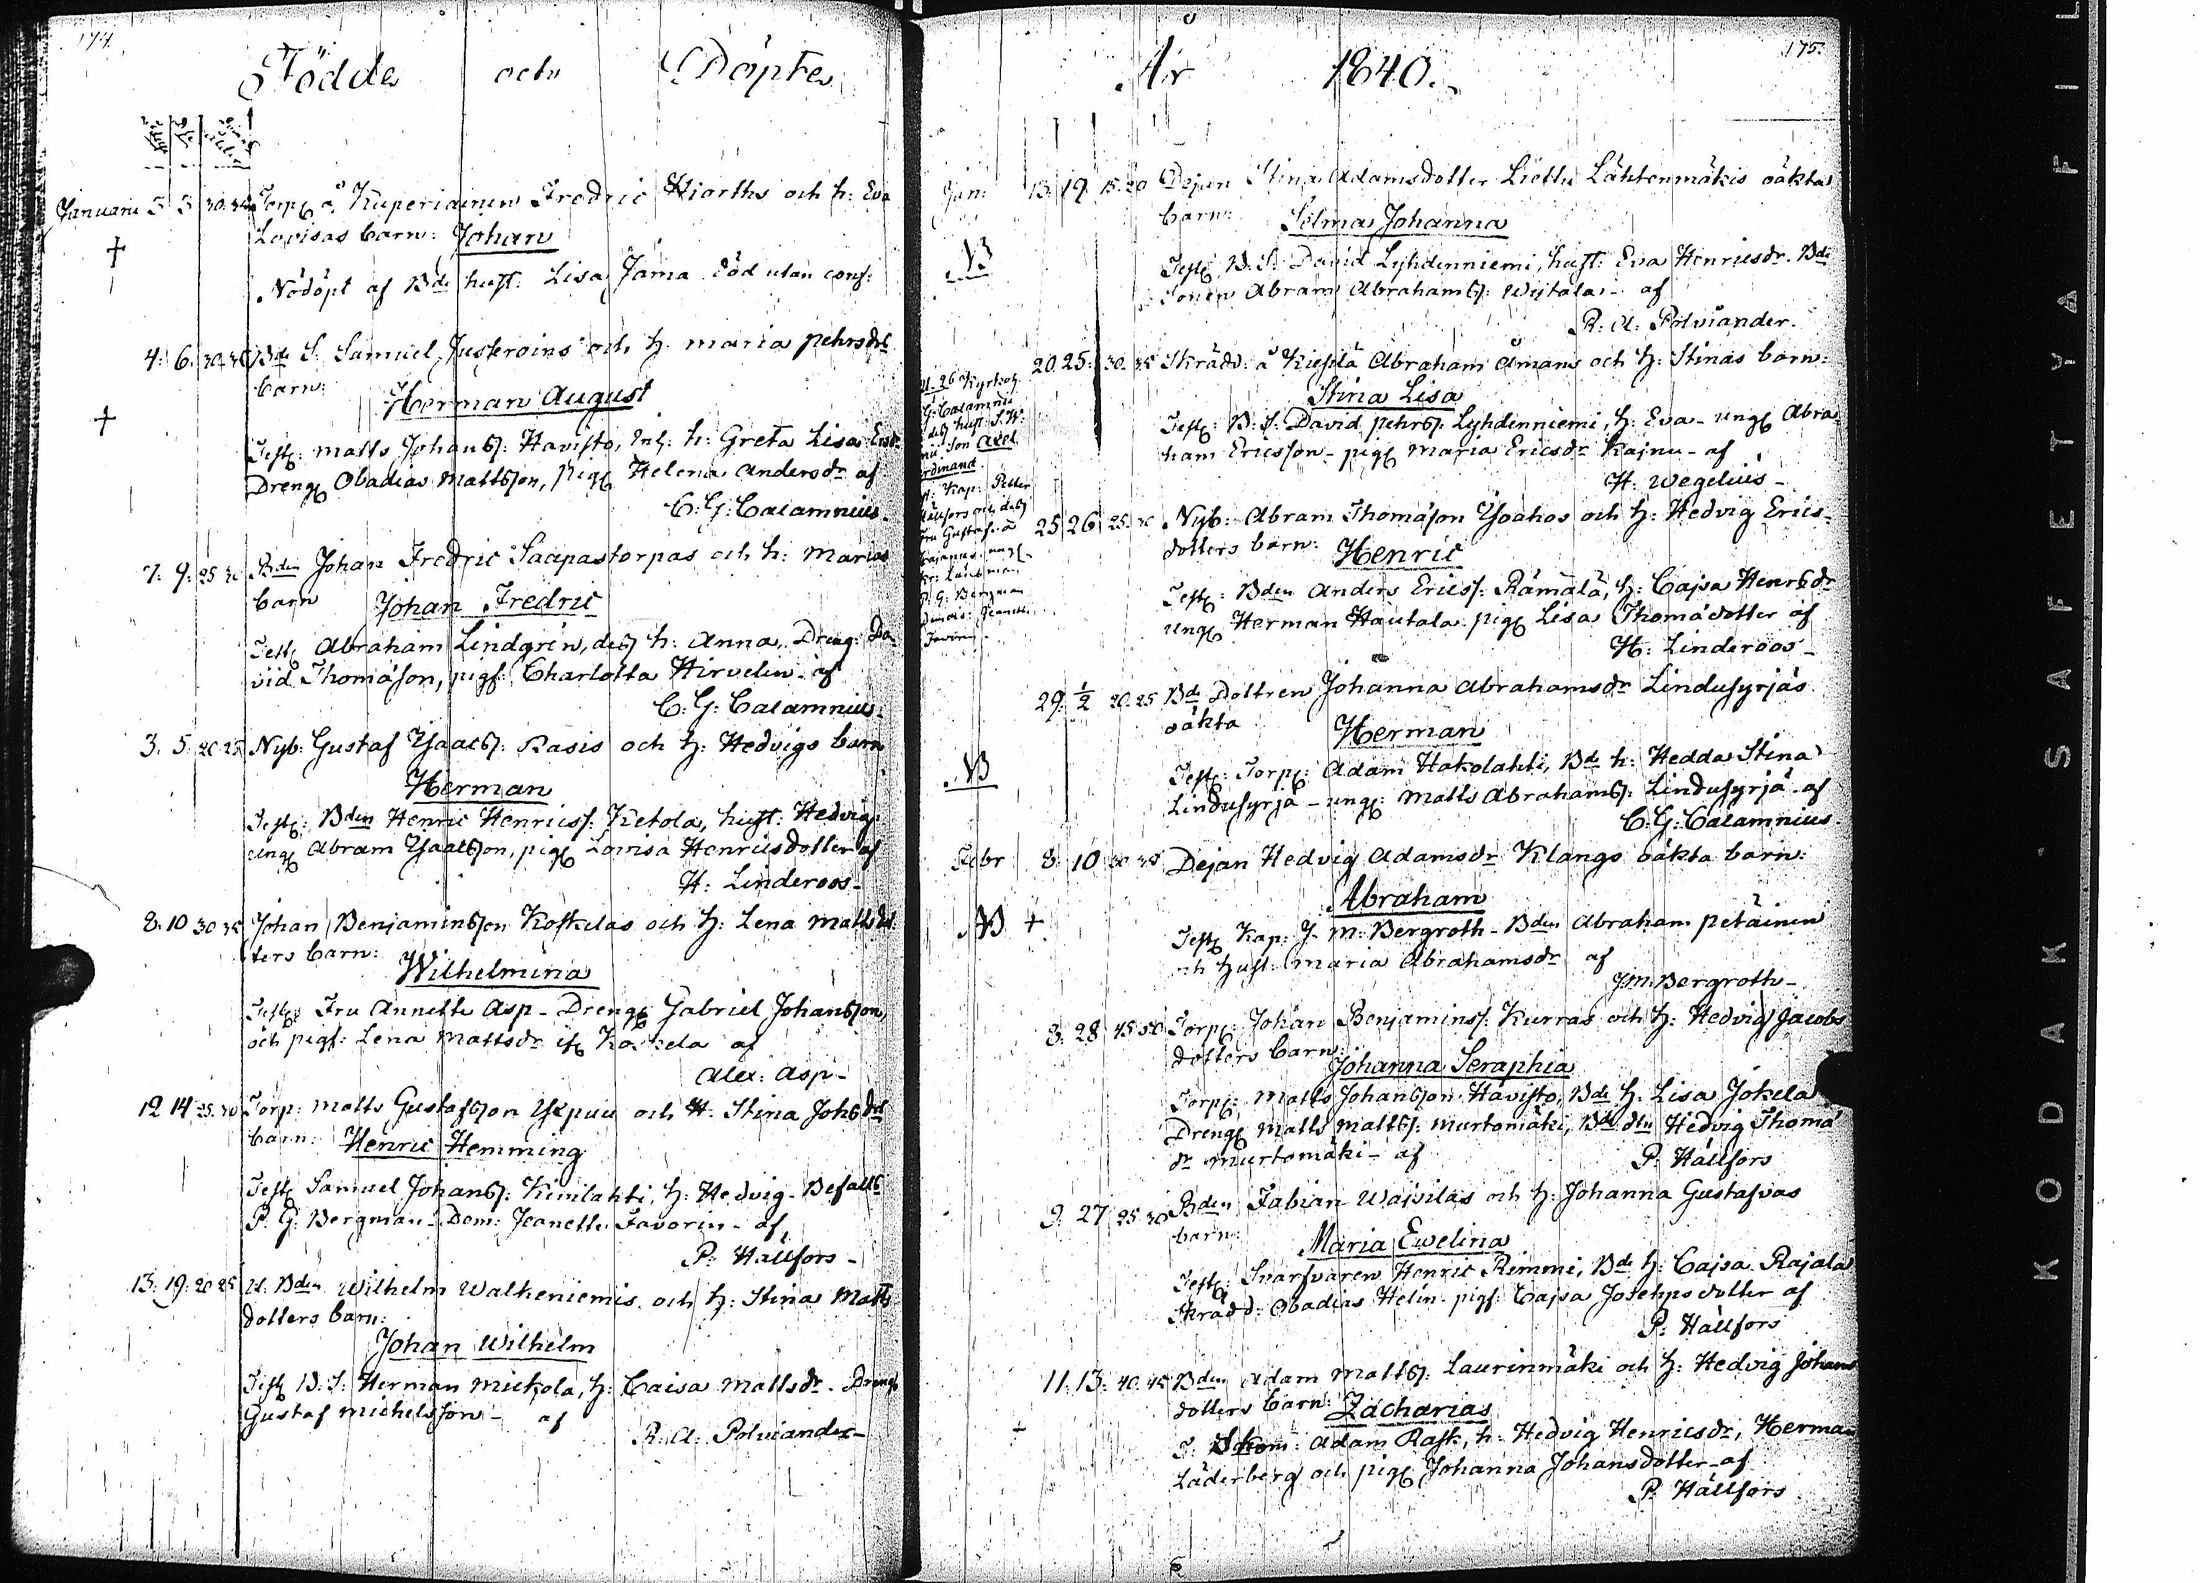 174.
Födde och Döpte
Januarii 3. 3. 30. 34 Torp: å Kuperiainen Fredric Hiorths och h: Eva
Lovisas barn: Johan
+
Nödöpt af Bde hust: Lisa Jama död utan conf:
4. 6. 30. 36 Bde S: Samuel Juskeroins och h: Maria Pehrsdr
barn: Herman August
+
Test: Matts Johanss: Havisto, h: Greta Lisa
Dreng Obadias Mattsson, pig: Helena Andersdr af
C: G: Calamnius
7. 9. 25 30 Bden Johan Fredric Saapastorpas och h: Marias
barn Johan Fredric
Test: Abraham Lindgrén, dess h: Anna, Dreng: Da
vid Thomasson, pig: Charlotta Hirvelin af
C: G: Calamnius
3. 5. 20 25 Nyb: Gustaf Isaacss: Rasis och h: Hedvigs barn
Herman
Test: Bden Henric Henricss: Ketola, hust: Hedvig.
ung: Abram Isaacsson, pig: Lovisa Henricsdotter af
H: Linderoos
8. 10 30 35 Johan Benjaminsson Koskelas och h: Lena Mattsdot
ters barn: Wilhelmina
Test: Fru Annette Asp - Dreng Gabriel Johansson
och pig: Lena Mattsdr Koskela af
Alex: Asp
12 14 25. 30 Torp: Matts Gustafsson och H: Stina Johsdr
barn: Henric Hemming
Test: Samuel Johanss: Kinilahti, h: Hedvig. Befallm
P. G: Bergman. Dem: Jeanette Favorin af
P: Hällfors
13. 19. 20 25 U. Bden Wilhelm Walkeniemis och h: Stina Matts
dotters barn:
Johan Wilhelm
Test B: S: Herman Mickola, h: Caisa Mattsdr. Dreng
Gustaf Michelsson af
R: A: Polviander
175.
År 1840.
Jan: 13. 19. 15. 20 Dejan Stina Adamsdotter Liettu Lähtenmäkis oäkta
barn: Selma Johanna
NB
Test: B. S: David Lyhdenniemi, hust: Eva Henricsdr. Bde
Sonen Abram Abrahamss: Wijtala - af
R: A: Polviander.
20. 25. 30. 35 Skrädd: å Kieslä Abraham Åmans och h: Stinas barn:
Stina Lisa
Test: B: S: David Pehrss: Lyhdenniemi, h: Eva - ung: Abra
ham Ericsson - pig: Maria Ericsdr Kajnu - af
H: Wegelius
26 Kyrkoh.
G: Calamnii
dess hust: S. W.
Son Axel
Ferdinand.
Kap: Petter
Hällfors och dess
Fru Gustafva
P. G: Bergman
Jeanette
Favorin
25 26 25. 30 Nyb: Abram Thomasson Isoahos och h: Hedvig Erics
dotters barn: Henric
Test: Bden Anders Ericss: Rämälä, h: Cajsa Henrsdr
ung: Herman Hautala. pig: Lisa Thomasdotter af
H: Linderoos
29. 1/2 20. 25 Bde Dottren Johanna Abrahamsdr Lindusyrjäs
oäkta Herman
NB
Test: Torp: Adam Hakolahti, Bde h: Hedda Stina
Lindusyrjä - ung: Matts Abrahamss: Lindusyrjä af
C: G: Calamnius
Febr 8. 10 30 35 Dejan Hedvig Adamsdr Klangs oäkta barn:
Abraham
NB +
Test: Kap: J. M: Bergroth - Bden Abraham Petäinen
och Hust: Maria Abrahamsdr af
J: M: Bergroth
3. 28 45 50 Torp: Johan Benjaminss: Kurras och h: Hedvig Jacobs
dotters barn: Johanna Seraphia
Torp: Matts Johansson Havisto, Bde h: Lisa Jokela
Dreng Matts Mattss: Murtomäki, Bde dtn Hedvig Thoma
dr Murtomäki - af
P: Hällfors
9. 27 25 30 Bden Fabian Waivilas och h: Johanna Gustafvas
barn: Maria Ewelina
Test: Svarfvaren Henric Rimmi, Bde h: Cajsa Rajala
Skrädd: Obadias Helin. pig: Cajsa Josephsdotter af
P: Hällfors
11. 13. 40. 45 Bden Adam Mattss: Laurinmäki och h: Hedvig Johans
dotters barn: Zacharias
+
T. Skom: Adam Rask, h: Hedvig Henricsdr, Herman
Läderberg och pig: Johanna Johansdotter af
P: Hällfors
KODAK SAFETY FIL